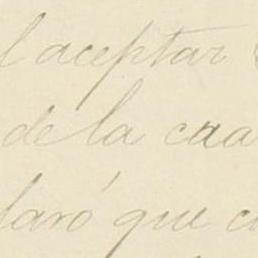 l aceptar
de la cua
laró que c